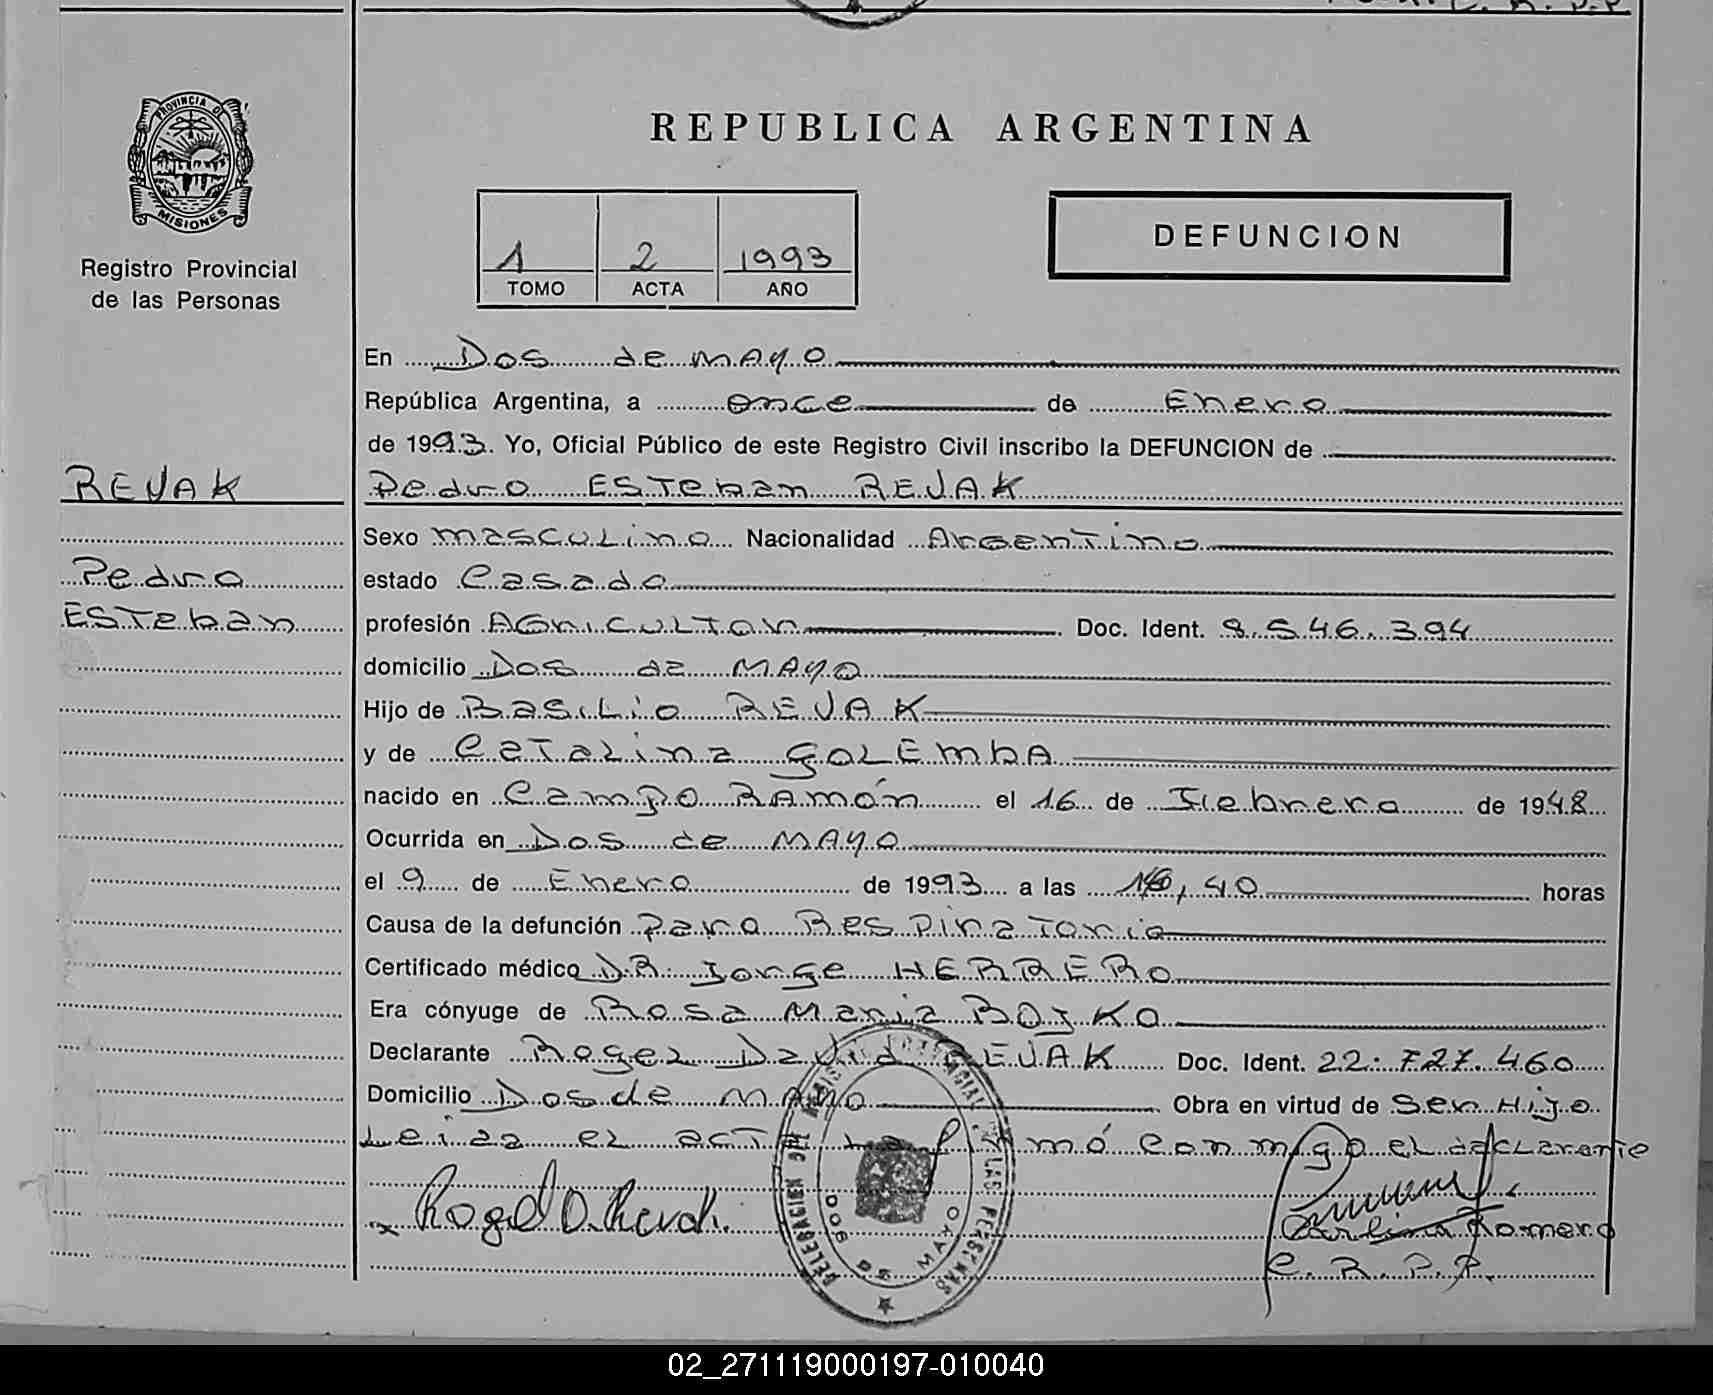 PROVINCIA DE
MISIONES
Registro Provincial
de las Personas
REPUBLICA ARGENTINA
1 2 1993
TOMO ACTA AÑO
DEFUNCION
En Dos de MAYO
República Argentina, a once de Enero
de 1993. Yo, Oficial Público de este Registro Civil inscribo la DEFUNCION de
REVAK
Pedro ESTeban REVAK
Sexo masculino Nacionalidad Argentino
Pedro
ESTeban
estado Casado
profesión Agricultor Doc. Ident. 8.546.394
domicilio Dos de MAYO
Hijo de Basilio REVAK
y de Catalina GOLEMBA
nacido en Campo Ramón el 16 de Febrero de 1948
Ocurrida en Dos de MAYO
el 9 de Enero de 1993 a las 40 horas
Causa de la defunción Paro Respiratorio
Certificado médico DR. Jorge HERRERO
Era cónyuge de Rosa Maria BOJKO
Declarante Rogel David REVAK Doc. Ident. 22.727.460
Domicilio Dos de MAYO Obra en virtud de Ser Hijo
Leida el acta la firmó conmigo el declarante
x Rogel D. Revak.
Carlina Romero
C.R.P.P.
DELEGACION DEL REGISTRO PROVINCIAL DE LAS PERSONAS
DOS DE MAYO
02_271119000197-010040